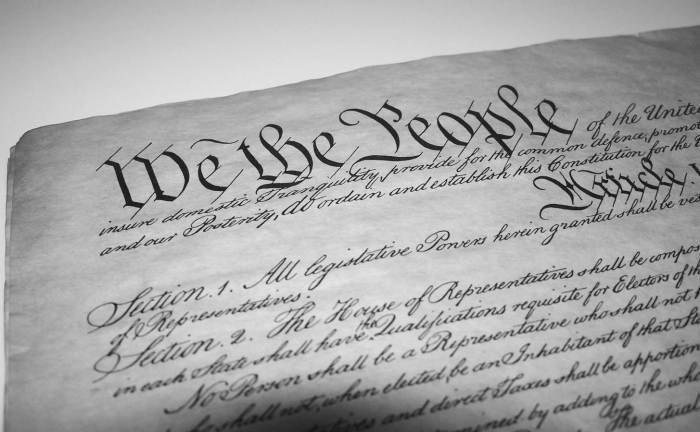 We the People of the United
insure domestic Tranquility, provide for the common defence, promot
and our Posterity, do ordain and establish this Constitution for the
Article
Section. 1. All legislative Powers herein granted shall be ves
of Representatives.
Section. 2. The House of Representatives shall be compos
in each State shall have the Qualifications requisite for Electors of th
No Person shall be a Representative who shall not
shall not, when elected, be an Inhabitant of that Sta
and direct Taxes shall be apportion
by adding to the who
The actual